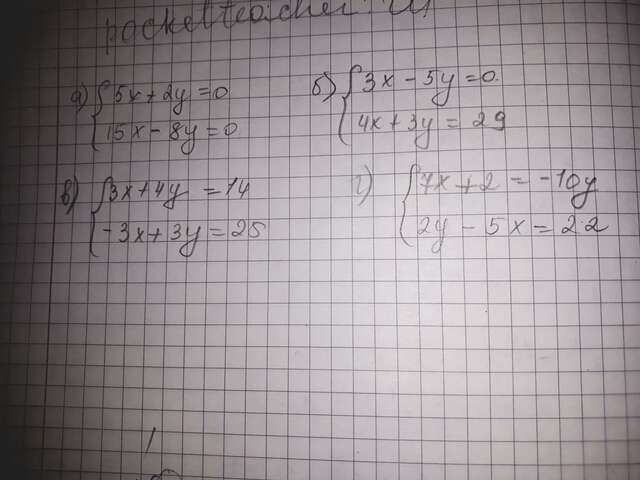 pocketteacher
а) { 5x + 2y = 0
15x - 8y = 0
б) { 3x - 5y = 0.
4x + 3y = 29
в) { 3x + 4y = 14
-3x + 3y = 25
г) { 7x + 2 = -10y
2y - 5x = 22